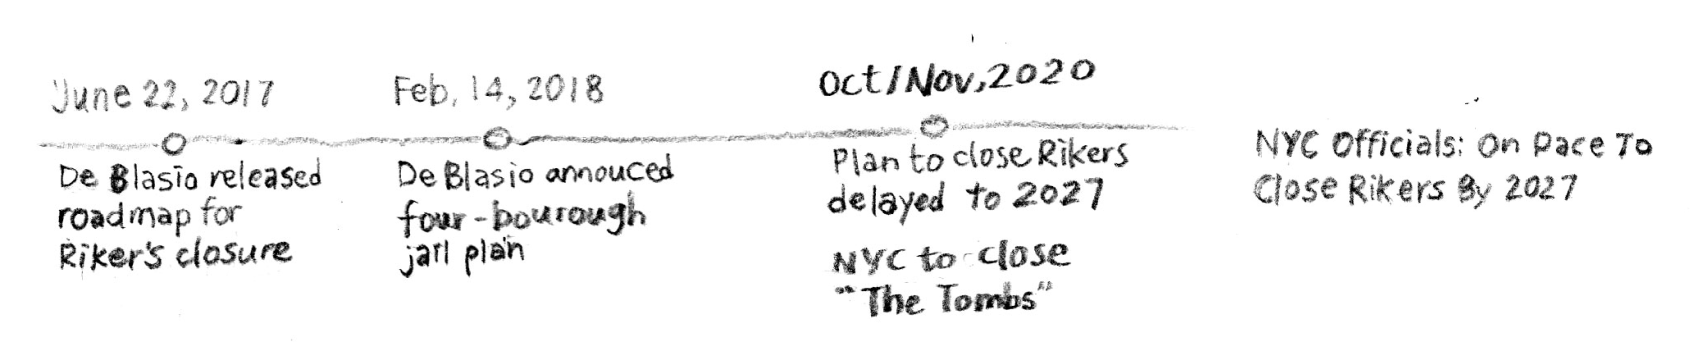 June 22, 2017
De Blasio released
roadmap for
Riker's closure
Feb. 14, 2018
De Blasio annouced
four-bourough
jail plan
Oct/Nov, 2020
Plan to close Rikers
delayed to 2027
NYC to close
"The Tombs"
NYC Officials: On Pace To
Close Rikers By 2027